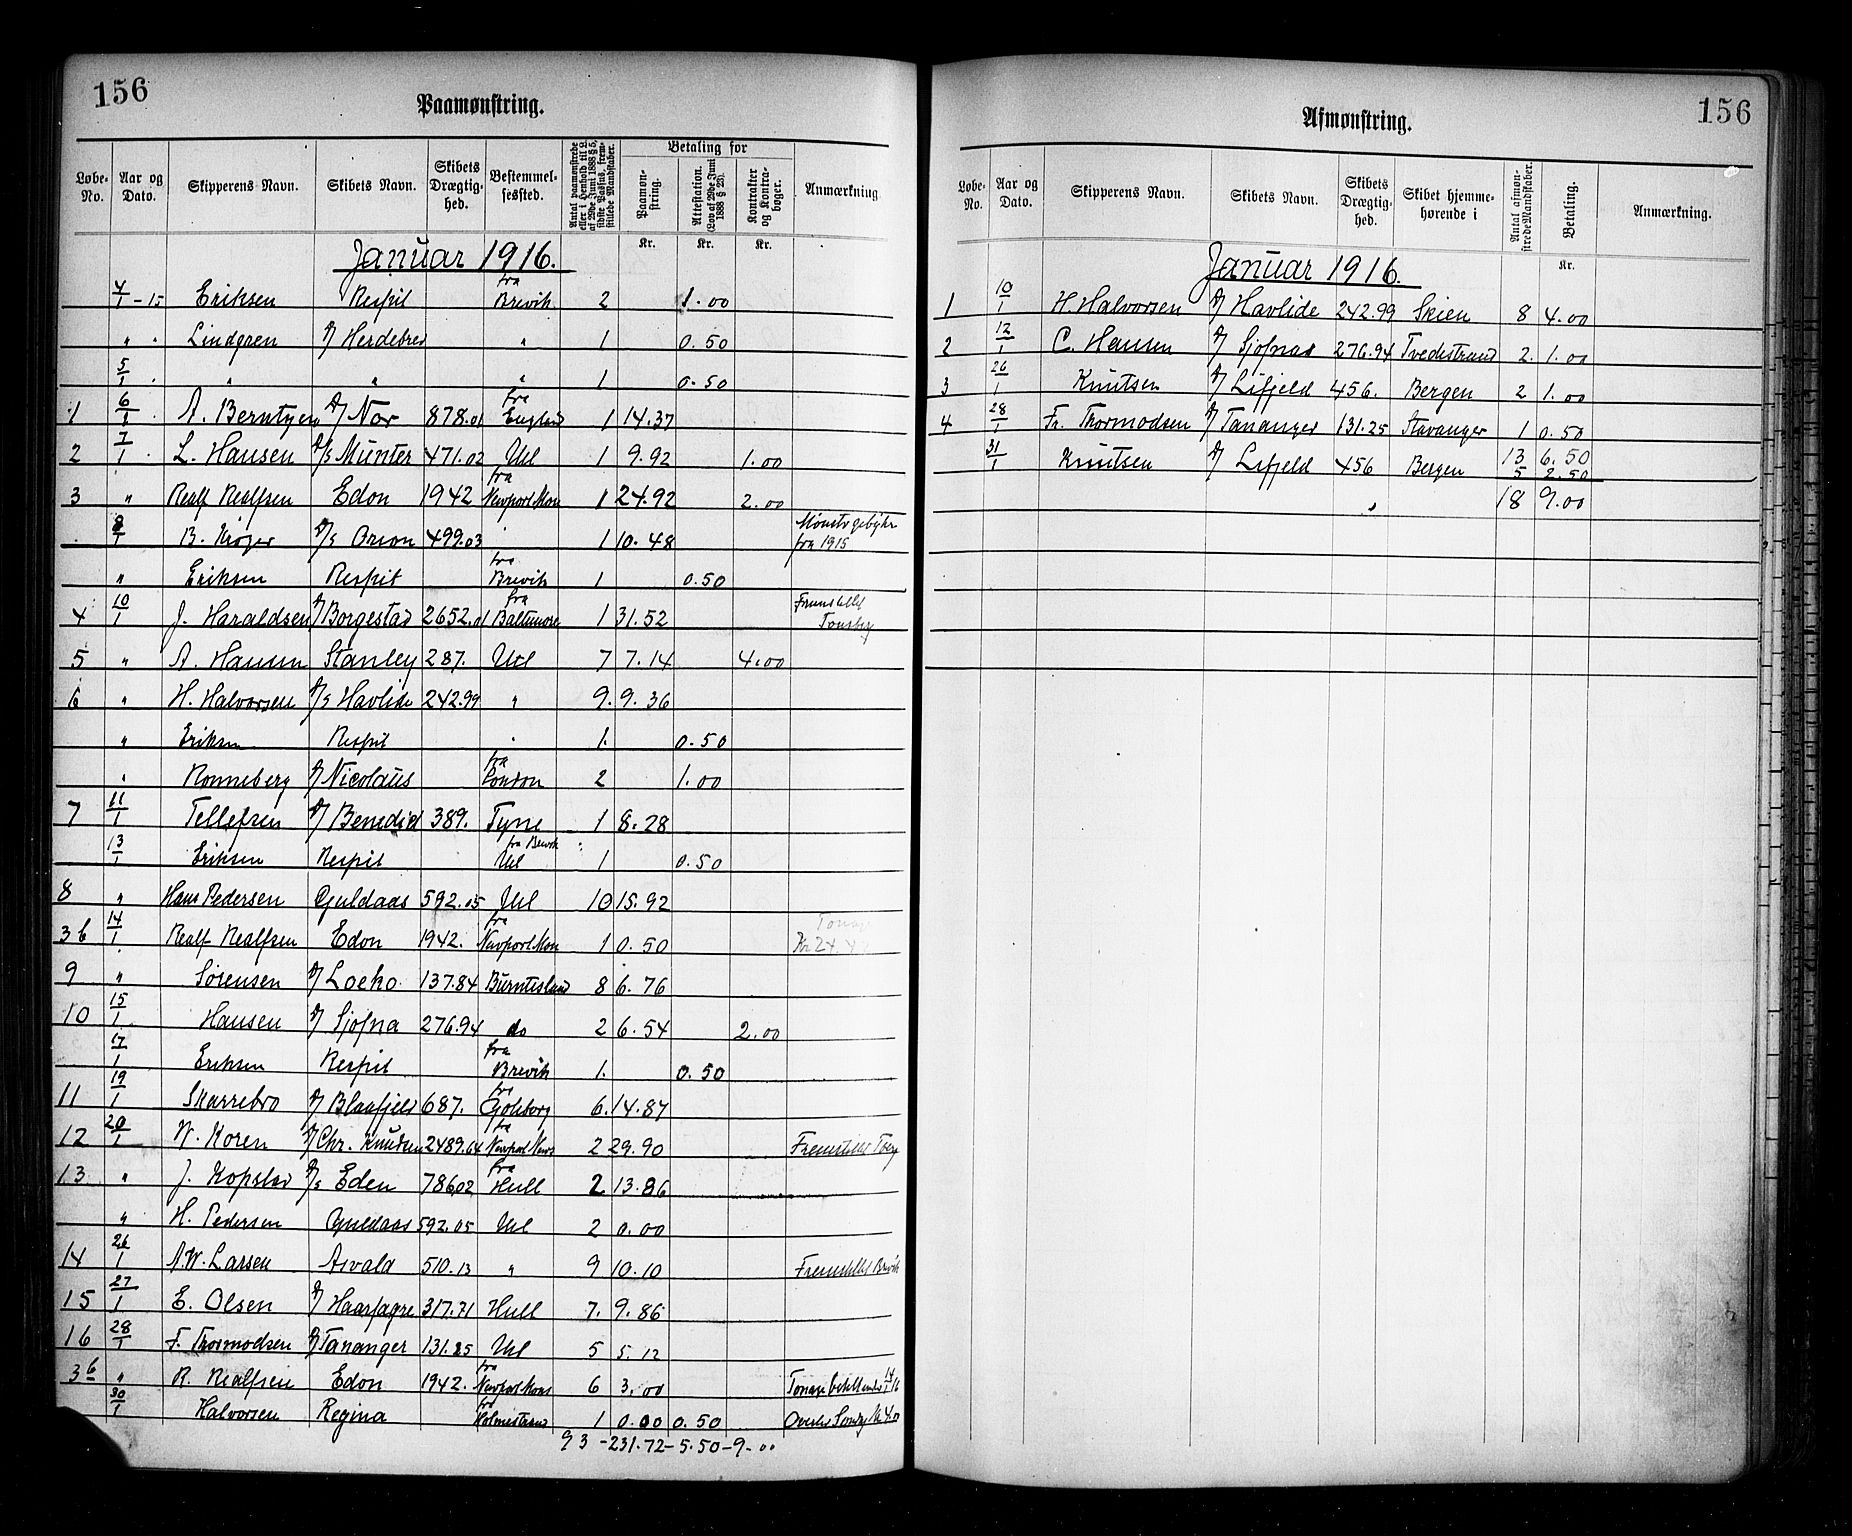 156
Paamønstring.
Løbe-No. | Aar og Dato. | Skipperens Navn. | Skibets Navn. | Skibets Drægtighed. | Bestemmelsessted. | Antal paamønstrede eller i Henhold til L. af 29de Juni 1888 § 5, sidste Passus, fremstillede Mandskaber. | Betaling for | Paamønstring. | Attestation. (Lov af 29de Juni 1888 § 23). | Kontrakter og Kontrabøger. | Anmærkning
Kr. Kr. Kr.
Januar 1916.
4/1 - 15 Eriksen Respit fra Brevik 2 1.00
" " Lindgren Herdebred " 1 0.50
5/1 " " " 1 0.50
1 6/1 A. Berntsen Nor 878.01 fra England 1 14.37
2 7/1 L. Hansen D/S Munter 471.02 Utl 1 9.92 1.00
3 " Realf Realfsen Edon 1942 fra Newport Mon 1 24.92 2.00
8/1 B. Krøger D/S Orion 499.03 " 1 10.48 Mønstr gebyhr fra 1915
" Eriksen Respit fra Brevik 1 0.50
4 10/1 J. Haraldsen Borgestad 2652.01 fra Baltimore 1 31.52 Fremstillet Tønsbg
5 " A. Hansen Stanley 287. Utl 7 7.14 4.00
6 " H. Halvorsen D/S Havlide 242.99 " 9. 9.36
" Eriksen Respit " 1. 0.50
" Ronneberg Nicolaus fra London 2 1.00
7 11/1 Tellefsen Benedict 389. Tyne 1 8.28
13/1 Eriksen Respit fra Brevik Utl 1 0.50
8 " Hans Pedersen Guldaas 592.05 Utl 10 15.92
3 b 14/1 Realf Realfsen Edon 1942. fra Newport Mon 1 0.50
9 " Sørensen Loeko 137.84 Burntisland 8 6.76
10 15/1 Hansen Sjofna 276.94 do 2 6.54 2.00
17/1 Eriksen Respit fra Brevik 1. 0.50
11 19/1 Skarrebro Blaafjeld 687. fra Gøteborg 6. 14.87
12 20/1 W. Koren Chr. Knudsen 2489.64 fra Newport News 2 29.90 Fremstillet Tbrg
13 " J. Kopstad D/S Eden 786.02 fra Hull 2 13.86
" H. Pedersen Guldaas 592.05 Utl 2 0.00
14 26/1 A.W. Larsen Asvald 510.13 " 9 10.10 Fremstillet Brevik
15 27/1 E. Olsen Haarfagre 317.71 Hull 7. 9.86
16 28/1 F. Thormodsen Tananger 131.25 Utl 5 5.12
3 b " R. Realfsen Edon 1942. fra Newport Mons 6 3.00 14/1 16
30/1 Halvorsen Regina fra Holmestrand 1 0.00 0.50
93 - 231.72 - 5.50 - 9.00
156
Afmønstring.
Løbe-No. | Aar og Dato. | Skipperens Navn. | Skibets Navn. | Skibets Drægtighed. | Skibet hjemmehørende i | Antal afmønstrede Mandskaber. | Betaling. | Anmærkning.
Kr.
Januar 1916.
1 10/1 H. Halvorsen Havlide 242.99 Skien 8 4.00
2 12/1 C. Hansen Sjofnas 276.94 Tvedestrand 2. 1.00
3 26/1 Knutsen Lifjeld 456. Bergen 2 1.00
4 28/1 Fr. Thormodsen Tananger 131.25 Stavanger 1 0.50
31/1 Knutsen Lifjeld 456 Bergen 13 6.50
5 2.50
18 9.00